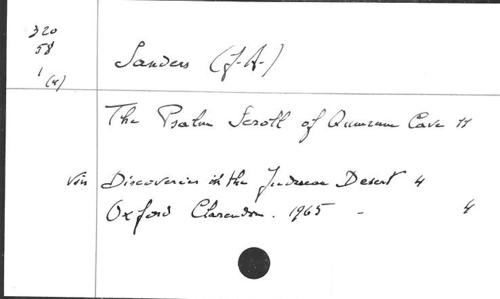 320
58
1 (4)
Sanders (J.A.)
The Psalm Scroll of Qumran Cave 11
Discoveries in the Judaean Desert 4
Oxford Clarendon. 1965 - 4